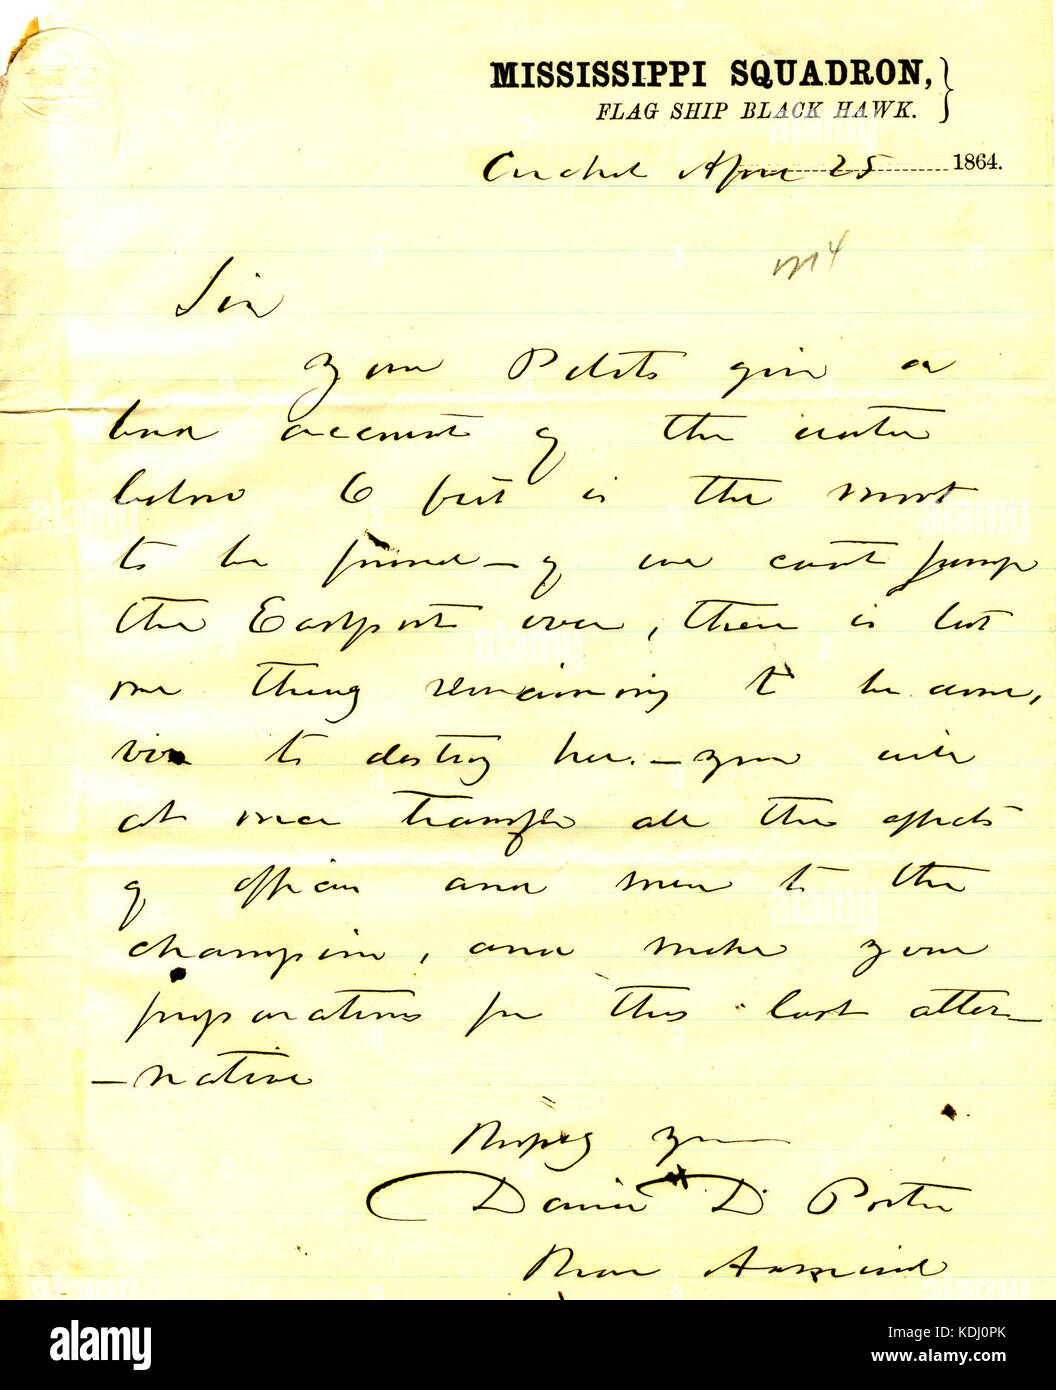 MISSISSIPPI SQUADRON, }
FLAG SHIP BLACK HAWK.
April 25 1864.
Sir
Your Pilots give a
bad account of the water
below 6 feet is the most
to be found – if we cant jump
the Eastport over, there is but
one thing remaining to be done,
viz to destroy her. – you will
at once transfer all the effects
of officers and men to the
champion, and make your
preparations for this last alter–
–native
Respy yours
David D Porter
Rear Admiral
alamy
Image ID: KDJ0PK
www.alamy.com